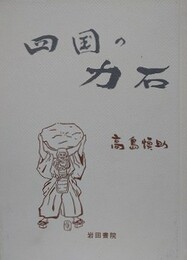 四国の
力石
高島愼助
岩田書院